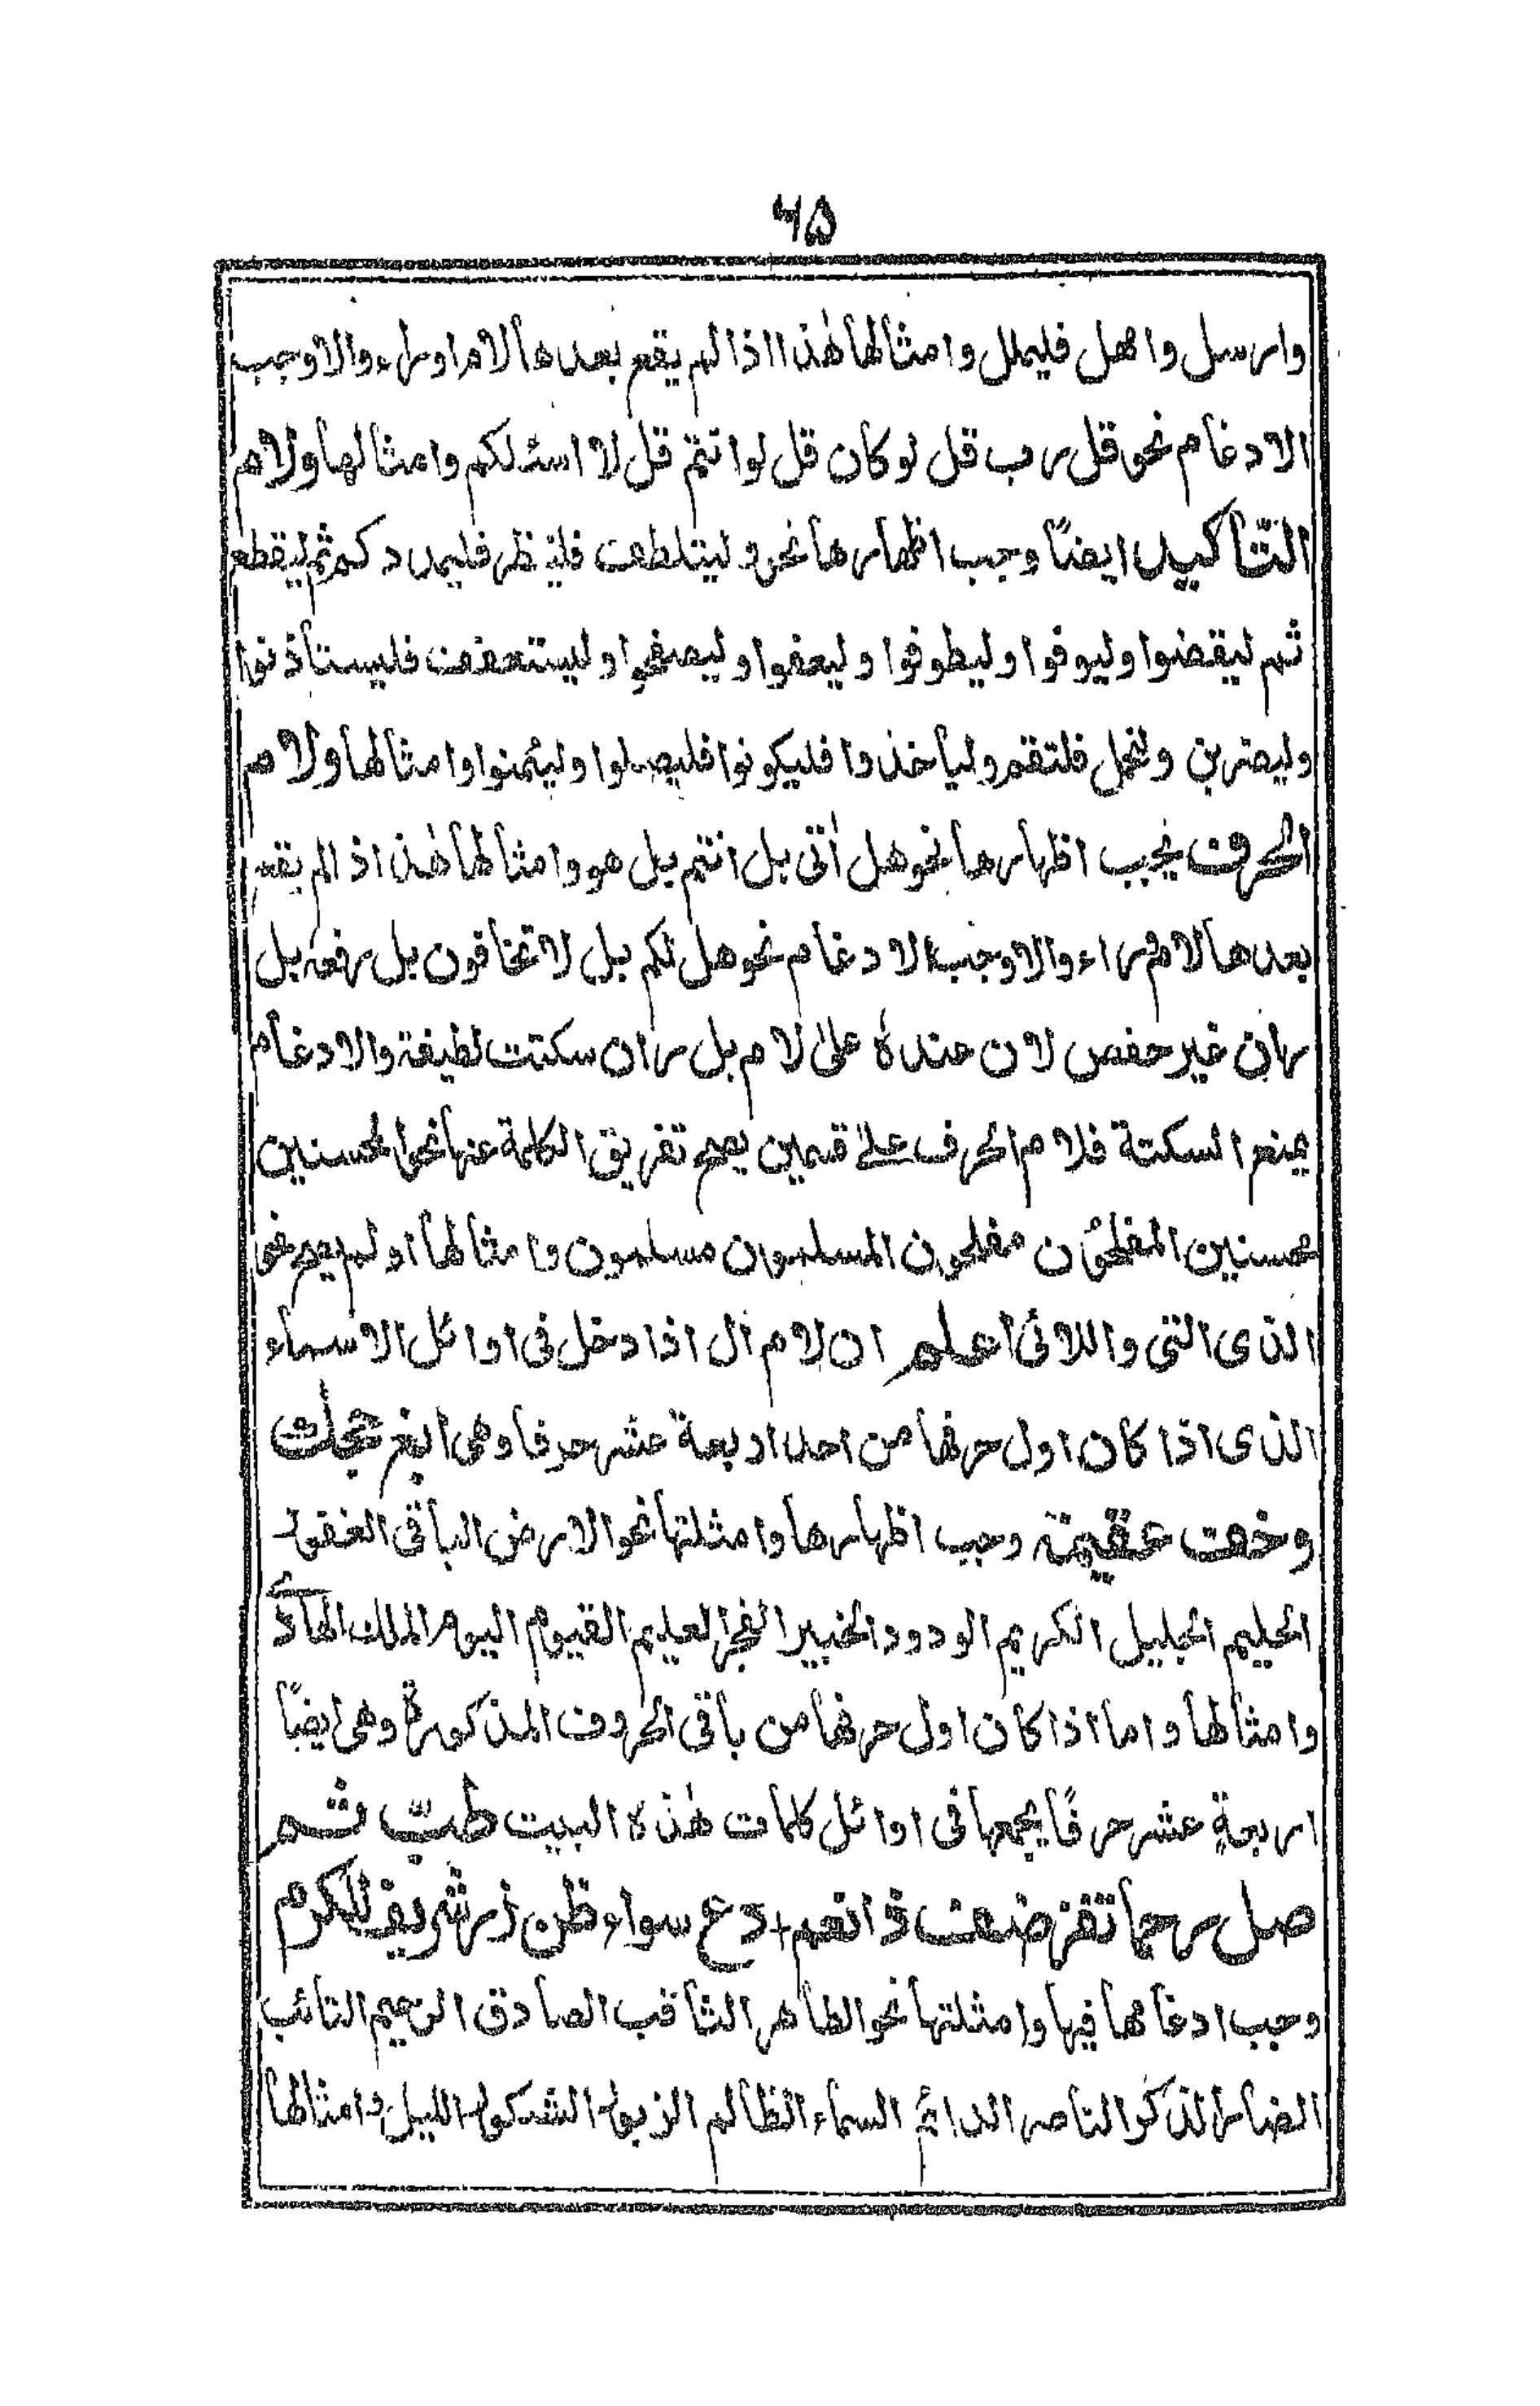 ۶۵
وارسل وامهل فليملل وامثالها هٰذا اذا لم يقع بعدها لام او راء والا وجب
الادغام نحو قل رب قل لو كان قل لو انتم قل لا اسئلكم وامثالها ولام
التّأكيد ايضاً وجب اظهارها نحو وليتلطف فلينظر فليمدد كم ثم ليقطع
ثم ليقضوا وليوفوا وليطوفوا وليعفوا وليصفحوا وليستعفف فليستأذنوا
وليضربن ولنحمل فلتقم وليأخذوا فليكونوا فليصلوا وليئمنوا وامثالها ولام
الحرف يجب اظهارها نحو هل أتى بل انتم بل هو وامثالها هٰذا اذ الم يقع
بعدها لام وراء والا وجب الادغام نحو هل لكم بل لا تخافون بل رفعه بل
ران غير حفص لان عنده على لام بل ران سكتت لطيفة والادغام
يمنع السكتة فلام الحرف على قسمين يصح تفريق الكلمة عنها نحو المحسنين
محسنين المفلحون مفلحون المسلمون مسلمون وامثالها او لم يصح نحو
الذى التى واللائى اعلم ان لام ال اذا دخل فى اوائل الاسماء
الذى اذا كان اول حرفها من احد اربعة عشر حرفا وهى ابغ حجك
وخف عقيمه وجب اظهارها وامثلتها نحو الارض الباقى الغفور
الحليم الجليل الكريم الودود الخبير الفجر العليم القيوم اليوم الملك الهادى
وامثالها واما اذا كان اول حرفها من باقى الحروف المذكورة وهى ايضاً
اربعةٍ عشر حرفًا يجمعها فى اوائل كلمات هٰذه البيت طب ثم
صل رحما تفز ضف ذا نعم + دع سواء ظن زر شريفا للكرم
وجب ادغامها فيها وامثلتها نحو الطاهر الثاقب الصادق الرحيم التائب
الضار الذكر الناصر الدائم السماء الظالم الزبور الشكور الليل وامثالها